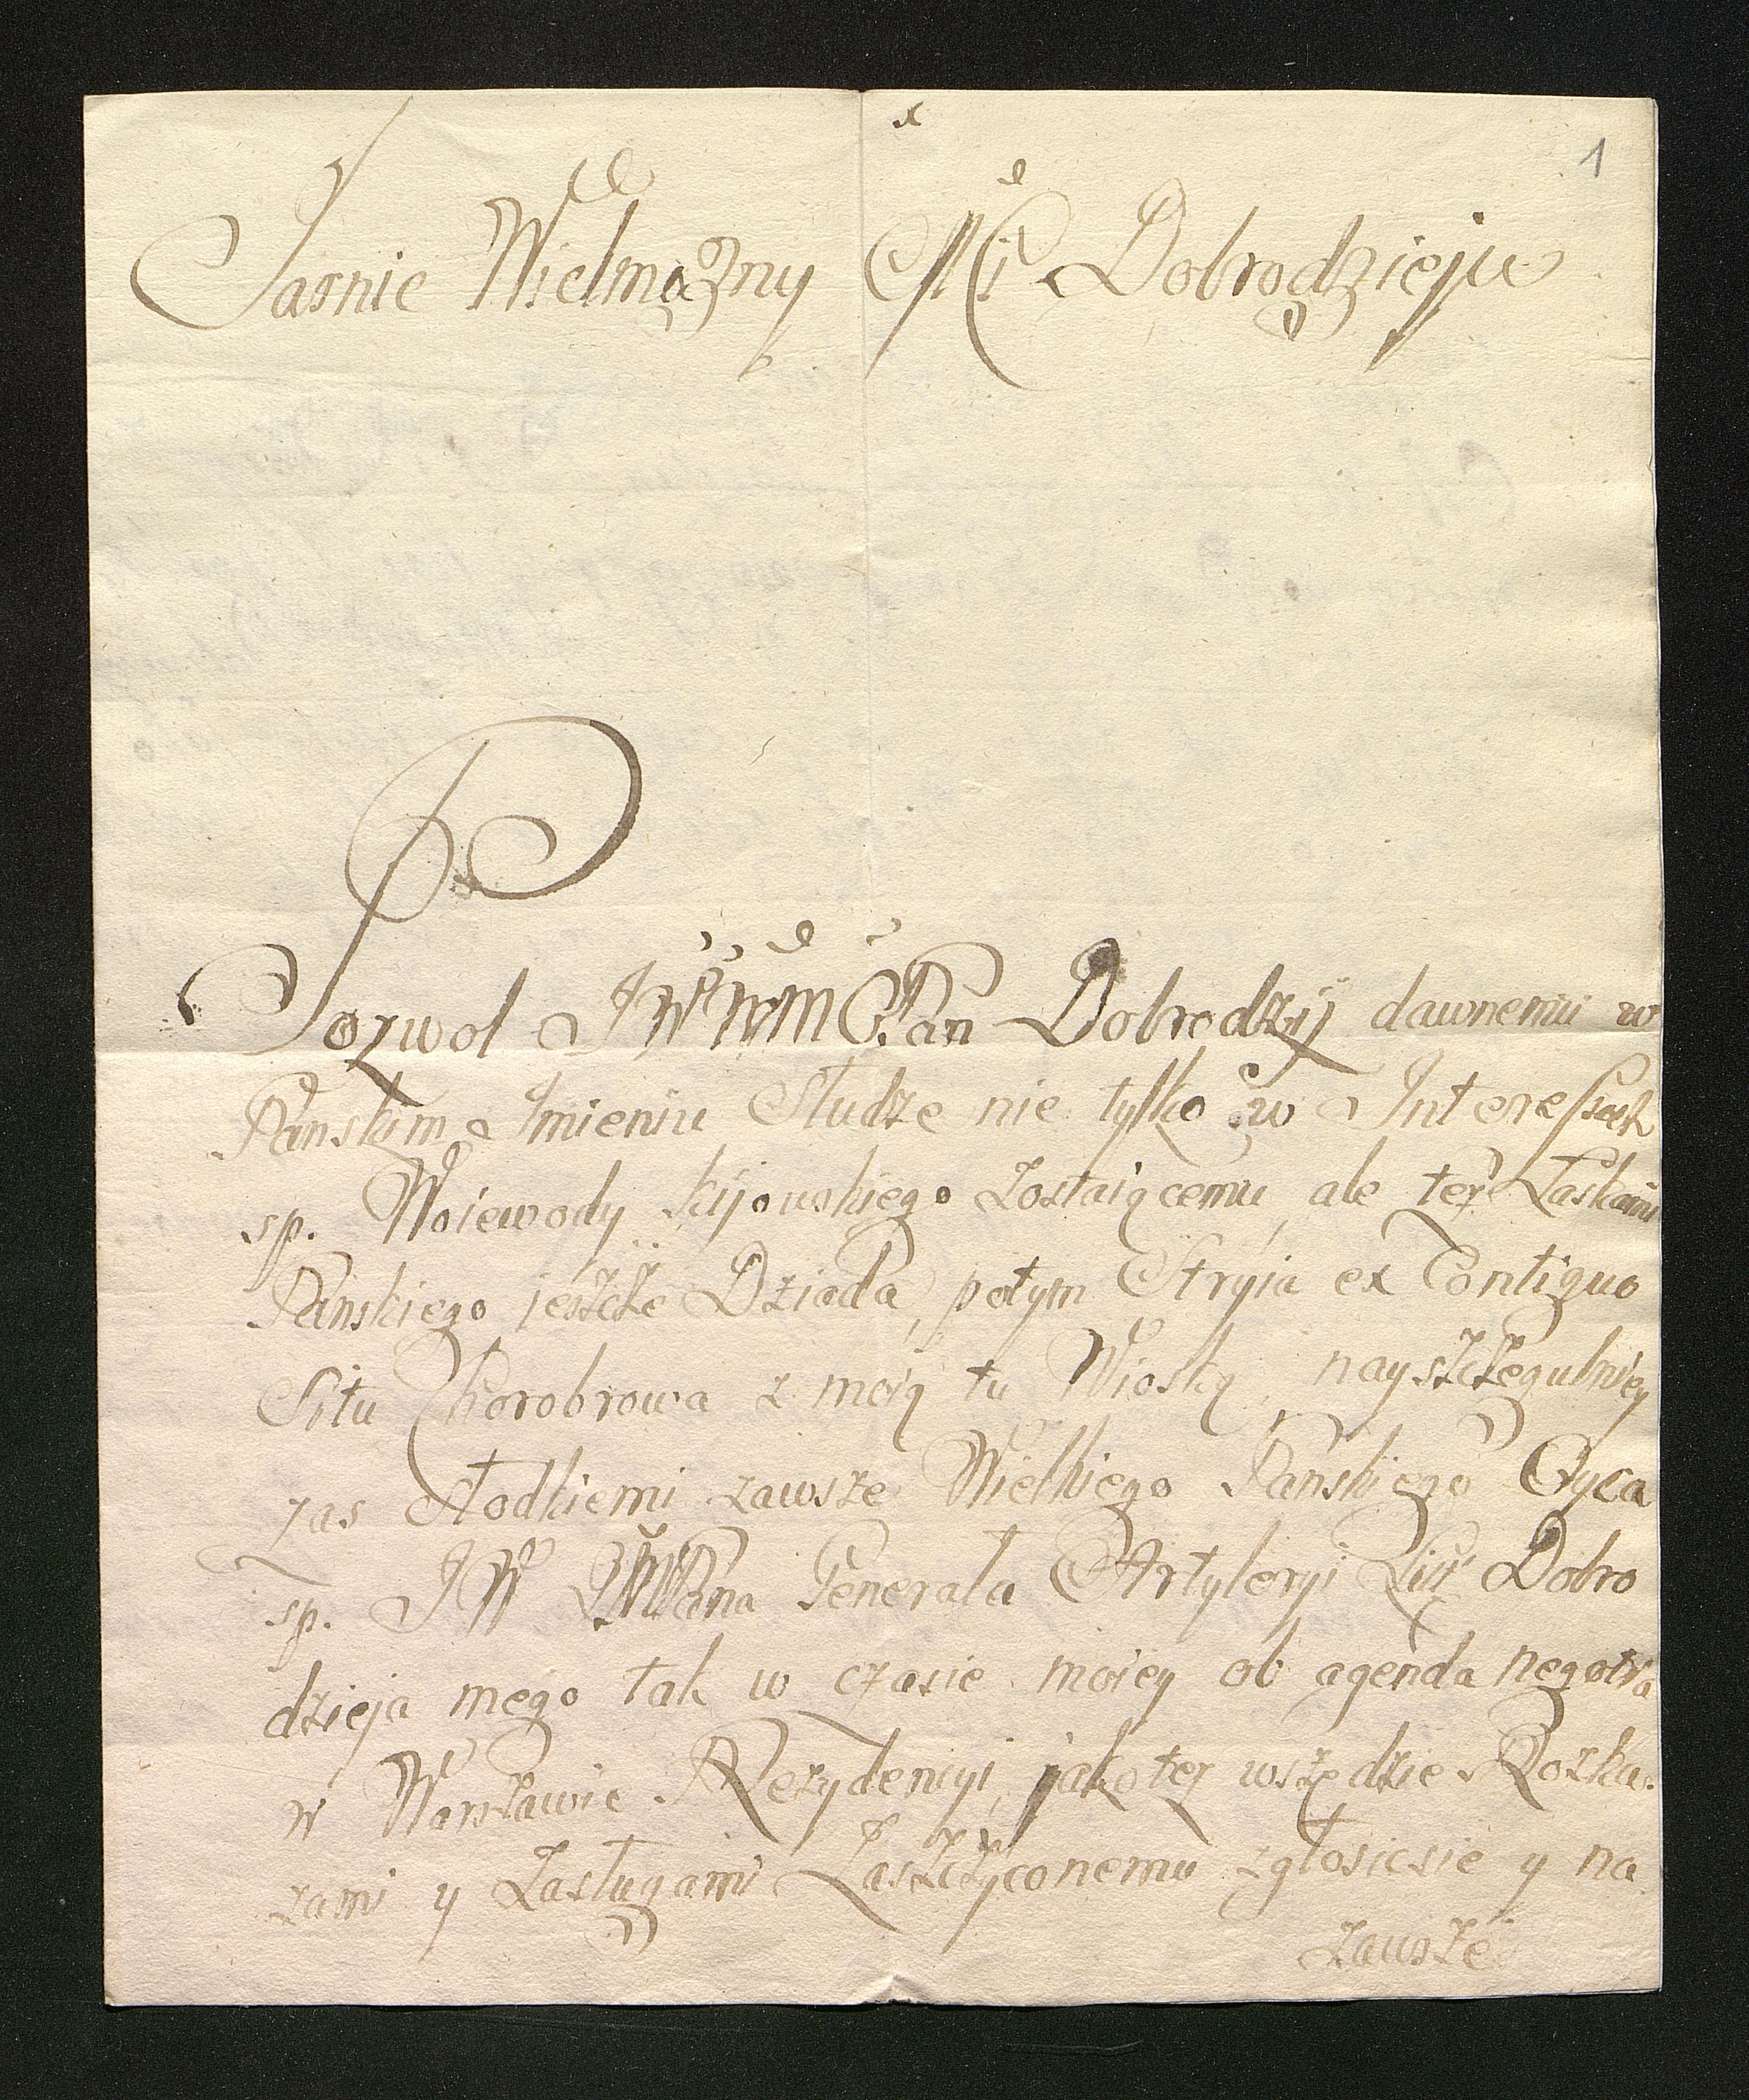 1
Jasnie Wielmożny Mći Dobrodzieju
Pozwol JWWM Pan Dobrodzij dawnemu w
Panskim Imieniu Słudze nie tylko w Interessach
sp. Woiewody kijowskiego zostaiącemu, ale też Łaskami
Pańskiego jeszcze Dziada, potym Stryia ex Contiguo
Situ Chorobrowa z moią tu Wioską, nayszczegulniey
zas słodkiemi zawsze Wielkiego Pańskiego Oyca
sp. JW Pana Generała Artyleryi Lit Dobro
dzieja mego tak w czasie moiey ob agenda negotia
w Warszawie Rezydencyi, jako też wszędzie Rozka:
zami y Zasługami Zaszczyconemu zgłosicsie y na
zawsze